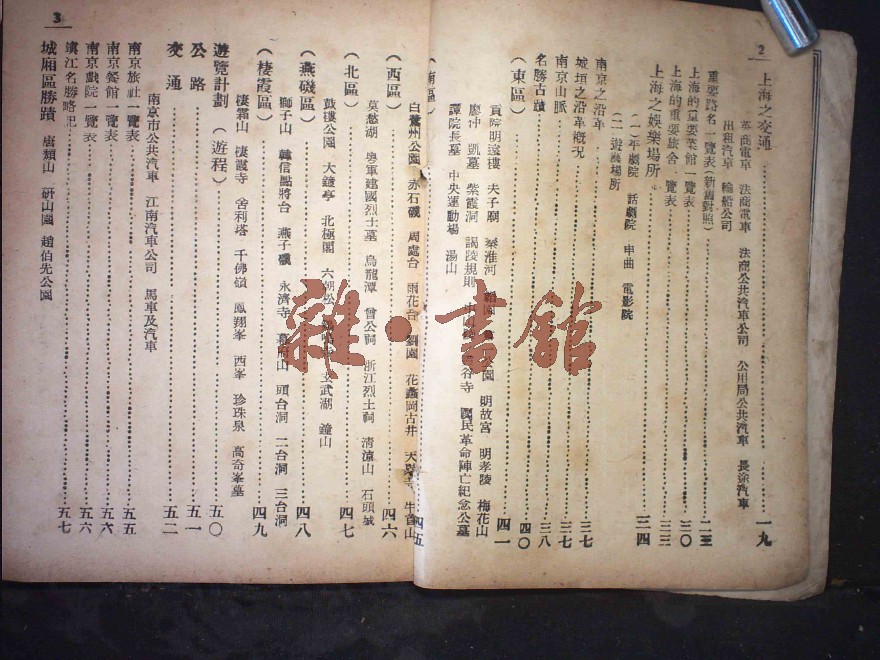 2
上海之交通 一九
英商電車 法商電車 法商公共汽車公司 公用局公共汽車 長途汽車
出租汽車 輪船公司
重要路名一覽表(新舊對照) 二三
上海的重要菜館一覽表 三〇
上海的重要旅舍一覽表 三三
上海之娛樂場所 三四
(一)年劇院 話劇院 申曲 電影院
(二)遊藝場所
南京之沿革 三七
城垣之沿革概況 三七
南京山脈 三八
名勝古蹟 四〇
(東區) 四一
貢院明遠樓 夫子廟 秦淮河 園 明故宮 明孝陵 梅花山
廖仲凱墓 紫霞洞 謁陵規則 谷寺 國民革命陣亡紀念公墓
譚院長墓 中央運動場 湯山
(南區) 四五
白鷺州公園 赤石磯 周處台 雨花台 劉園 花蟲岡古井 天 牛首山
(西區) 四六
莫愁湖 粵軍建國烈士墓 烏龍潭 曾公祠 浙江烈士祠 清涼山 石頭城
(北區) 四七
鼓樓公園 大鐘亭 北極閣 六朝松 玄武湖 鐘山
(燕磯區) 四八
獅子山 韓信點將台 燕子磯 永濟寺 幕府山 頭台洞 二台洞 三台洞
(棲霞區) 四九
棲霜山 棲霞寺 舍利塔 千佛嶺 鳳翔峯 西峯 珍珠泉 高奇峯墓
遊覽計劃(遊程) 五〇
公路 五一
交通 五二
南京市公共汽車 江南汽車公司 馬車及汽車
南京旅社一覽表 五五
南京餐館一覽表 五六
南京戲院一覽表 五六
鎮江名勝略記 五七
城廂區勝蹟 唐頹山 研山園 趙伯先公園
3
雜·書館